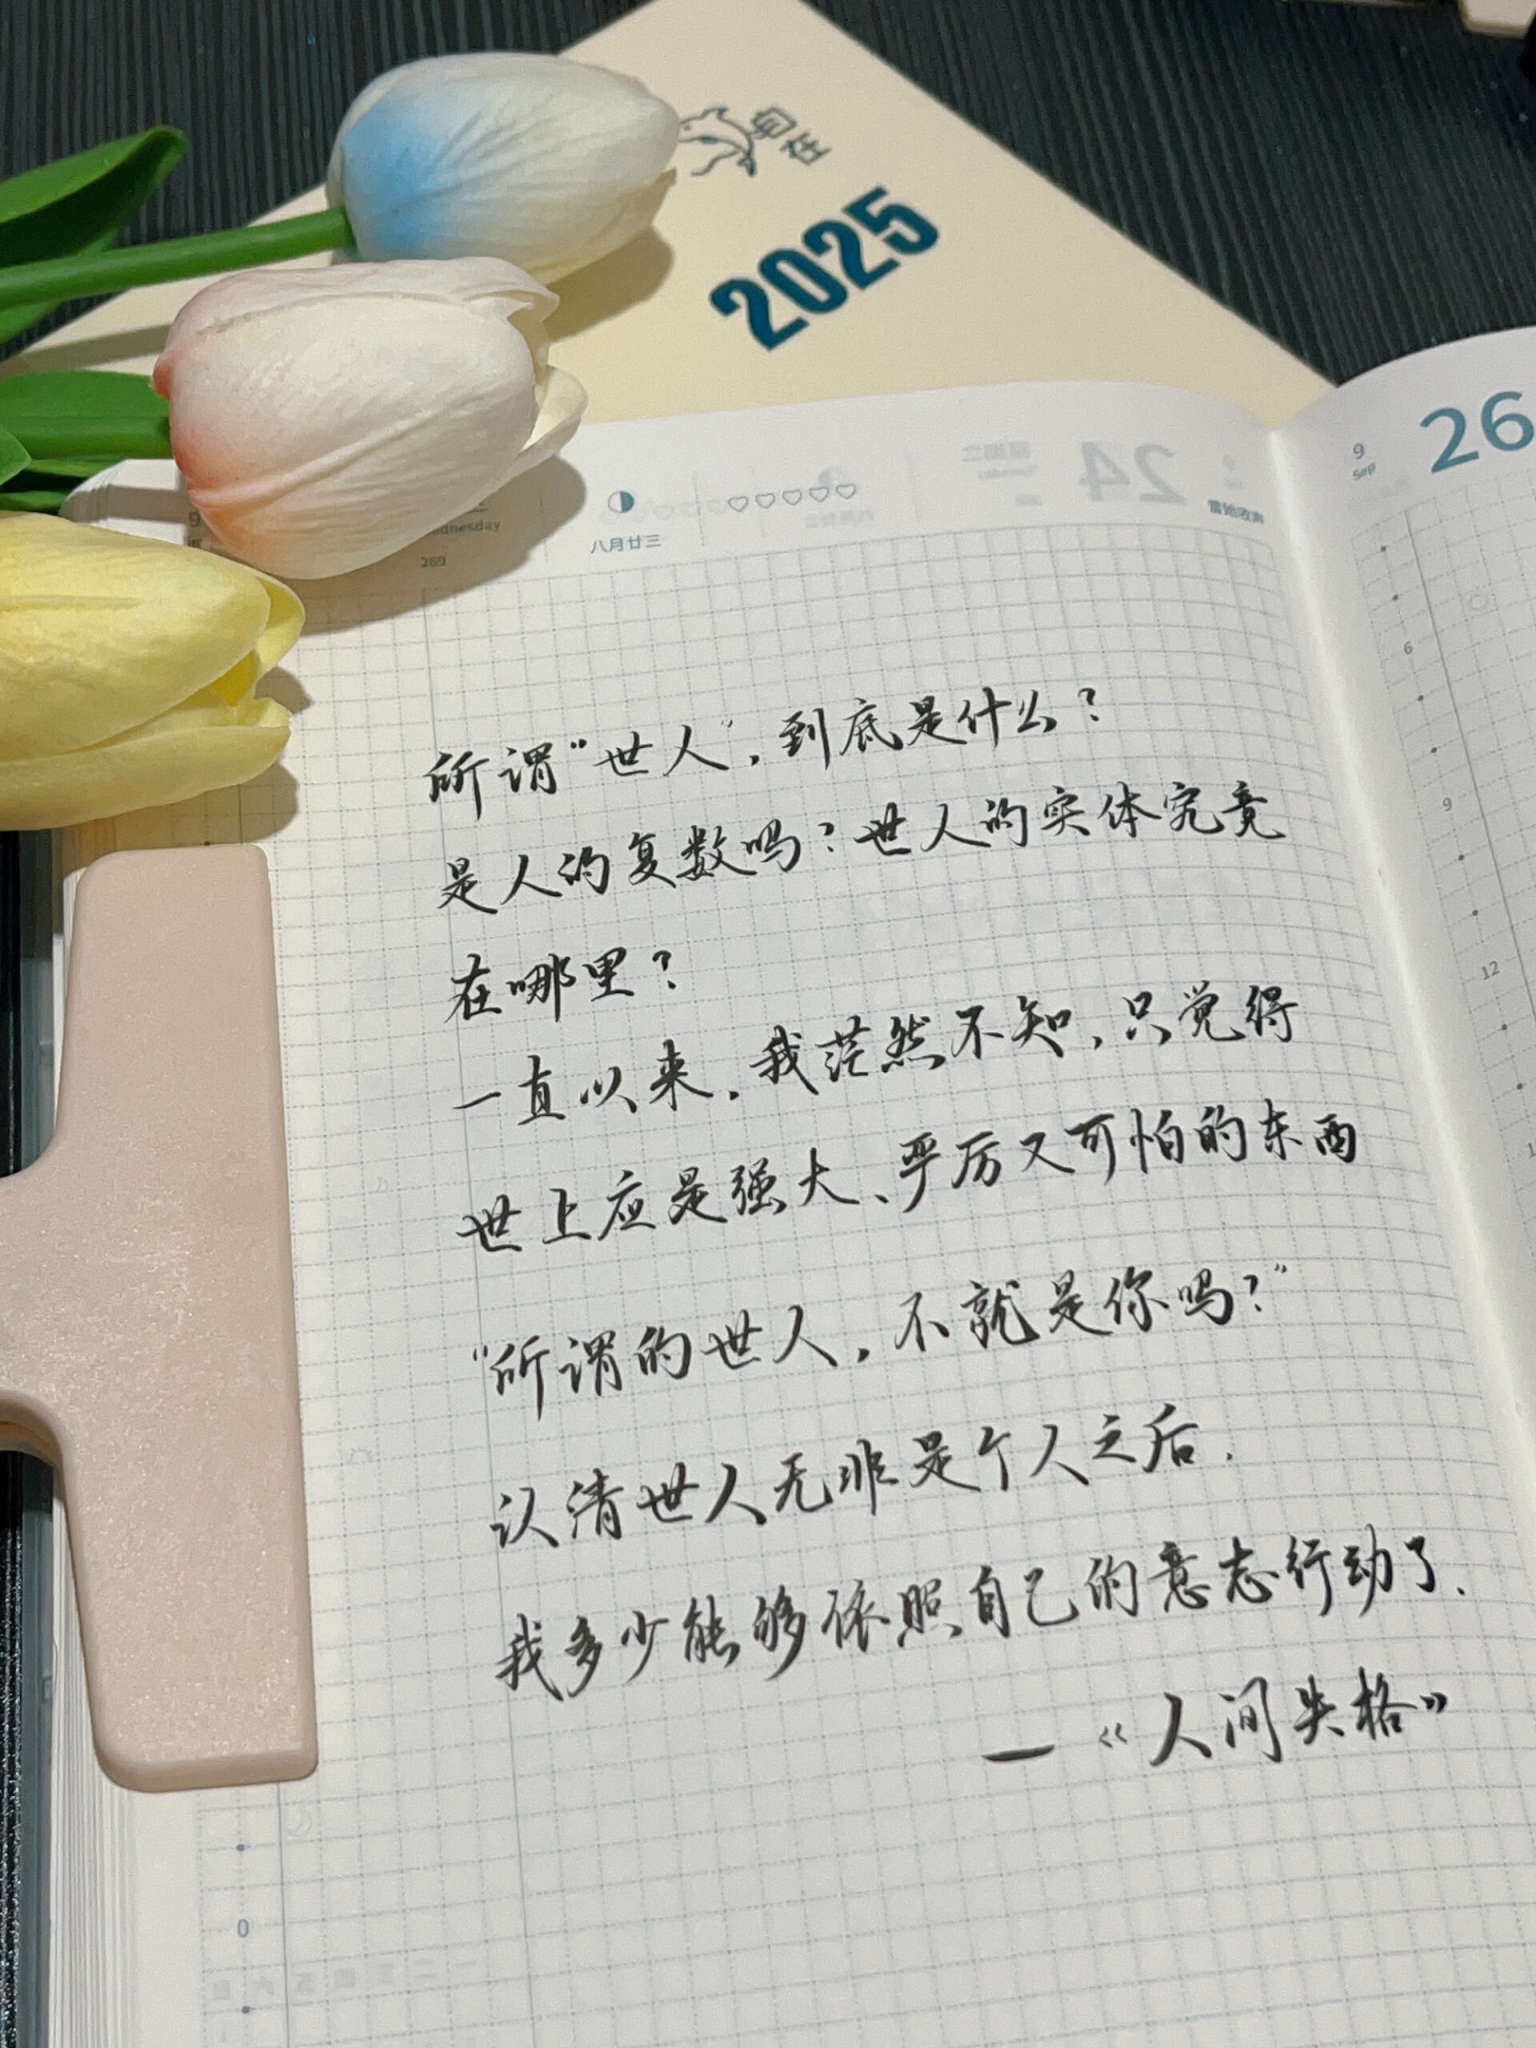 自在
2025
24
9
Sep
26
dnesday
269
八月廿三
雷始收声
所谓“世人”，到底是什么？
是人的复数吗？世人的实体究竟
在哪里？
一直以来，我茫然不知，只觉得
世上应是强大、严厉又可怕的东西
“所谓的世人，不就是你吗？”
认清世人无非是个人之后．
我多少能够依照自己的意志行动了．
—《人间失格》
6
9
12
0